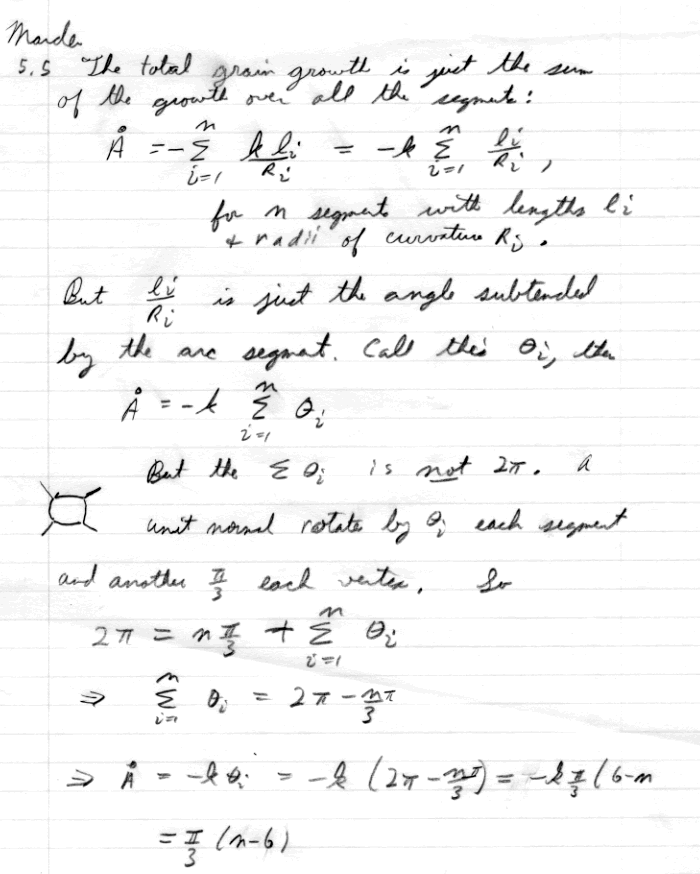 Marder
5.5 The total grain growth is just the sum
of the growth over all the segments:
Å = - Σ_{i=1}^{n} k l_i / R_i = -k Σ_{i=1}^{n} l_i / R_i ,
for n segments with lengths l_i
+ radii of curvature R_i .
But l_i / R_i is just the angle subtended
by the arc segment. Call this θ_i, then
Å = -k Σ_{i=1}^{n} θ_i
But the Σ θ_i is not 2π. A
unit normal rotates by θ_i each segment
and another π/3 each vertex. So
2π = n π/3 + Σ_{i=1}^{n} θ_i
⇒ Σ_{i=1}^{n} θ_i = 2π - nπ/3
⇒ Å = -k θ_i = -k (2π - nπ/3) = -k π/3 (6-n
= π/3 (n-6)